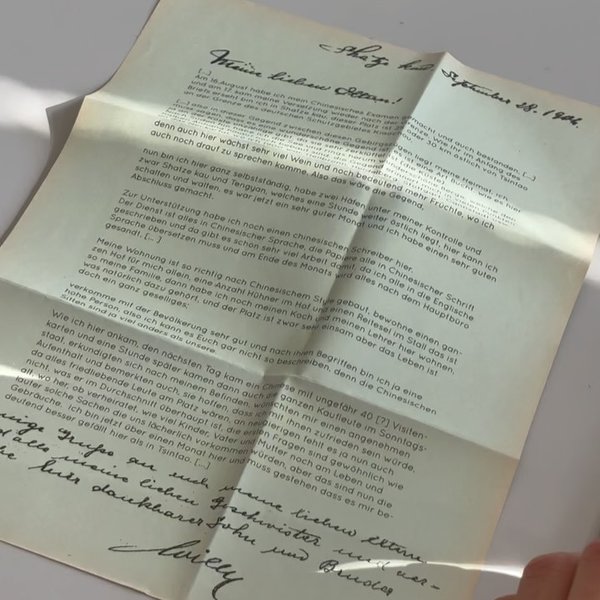 Shatze kau September 28. 1904.
Meine lieben Eltern!
[...]
Am 16. August habe ich mein Chinesisches Examen gemacht und auch bestanden,
und am 17. kam meine Versetzung
Briefe ersehen bin ich in Shatze kau, dieser Platz ist
der Grenze des deutschen Schutzgebietes
denn auch hier wächst sehr viel Wein und noch bedeutend mehr Früchte, wo ich
auch noch drauf zu sprechen komme. Also das wäre die Gegend,
nun bin ich hier ganz selbstständig, habe zwei Häfen unter meiner Kontrolle und
zwar Shatze kau und Tengyan, welches eine Stunde weiter östlich liegt, hier kann ich
schalten und walten, es war jetzt ein sehr guter Monat und ich habe einen sehr guten
Abschluss gemacht.
Zur Unterstützung habe ich noch einen chinesischen Schreiber hier.
Der Dienst ist alles in Chinesischer Sprache, die Papiere alle in Chinesischer Schrift
geschrieben und da gibt es schon sehr viel Arbeit damit, da ich alle in die Englische
Sprache übersetzen muss und am Ende des Monats wird alles nach dem Hauptbüro
gesandt. [...]
Meine Wohnung ist so richtig nach Chinesischem Stiel gebaut, bewohne einen gan-
zen Hof für mich allein, eine Anzahl Hühner im Hof und einen Reitesel im Stall das ist
so meine Familie, dann habe ich noch meinen Koch und meinen Lehrer hier wohnen
was natürlich dazu gehört, und der Platz ist zwar sehr einsam aber das Leben ist
doch ein ganz geselliges;
verkomme mit der Bevölkerung sehr gut und nach ihren Begriffen bin ich ja eine
hohe Person, also ich kann es Euch gar nicht so beschreiben, denn die Chinesischen
Sitten sind ja viel anders als unsere.
Wie ich hier ankam, den nächsten Tag kam ein Chinese mit ungefähr 40 [?] Visiten-
karten und eine Stunde später kamen dann auch die ganzen Kaufleute im Sonntags-
staat, erkundigten sich nach meinen Befinden, wünschten mir einen angenehmen
Aufenthalt und bemerkten auch, sie hofen, dass ich mit ihnen zufrieden sein würde,
da alles friedliebende Leute am Platz wären, an
nicht, was er im Durchschnitt überhaupt ist, die ersten Fragen sind gewöhnlich wie
alt, wo her, ob verheiratet, wie viel Kinder, Vater und Mutter noch am Leben und
laufer solche Sachen die uns lächerlich vorkommen würden, aber das sind nun die
Gebräuche. Ich bin jetzt über einen Monat hier und muss gestehen dass es mir be-
deutend besser gefällt hier als in Tsintao. [...]
innige Grüße an euch meine lieben Eltern
alle meine lieben Geschwister und ver-
Euer dankbarer Sohn und Bruder
Willy